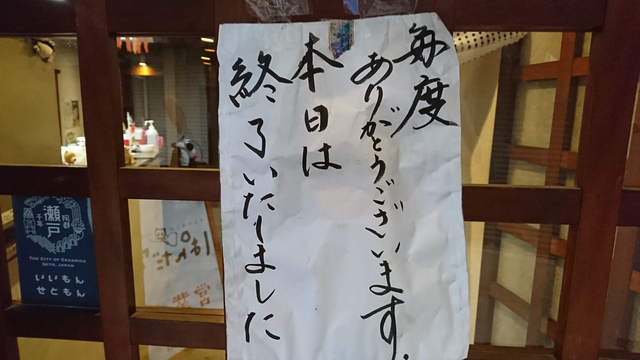 毎度
ありがとうございます.
本日は
終了いたしました
瀬戸
THE CITY OF CERAMICS
SETO, JAPAN
いいもん
せともん
ぱんだ
営業